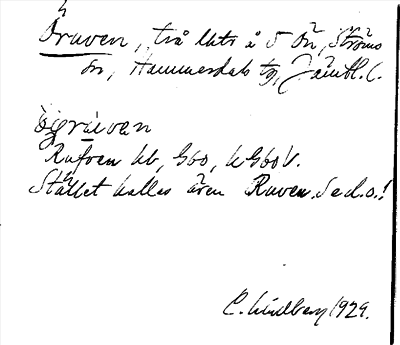 Öraven, två lhtr å S Ön, Ströms
sn, Hammerdals tg, Jämtl. l.
Rafven kb, G60, hG60 V.
Stället kallas även Raven. Se d.o.!
C. Lindberg 1929.